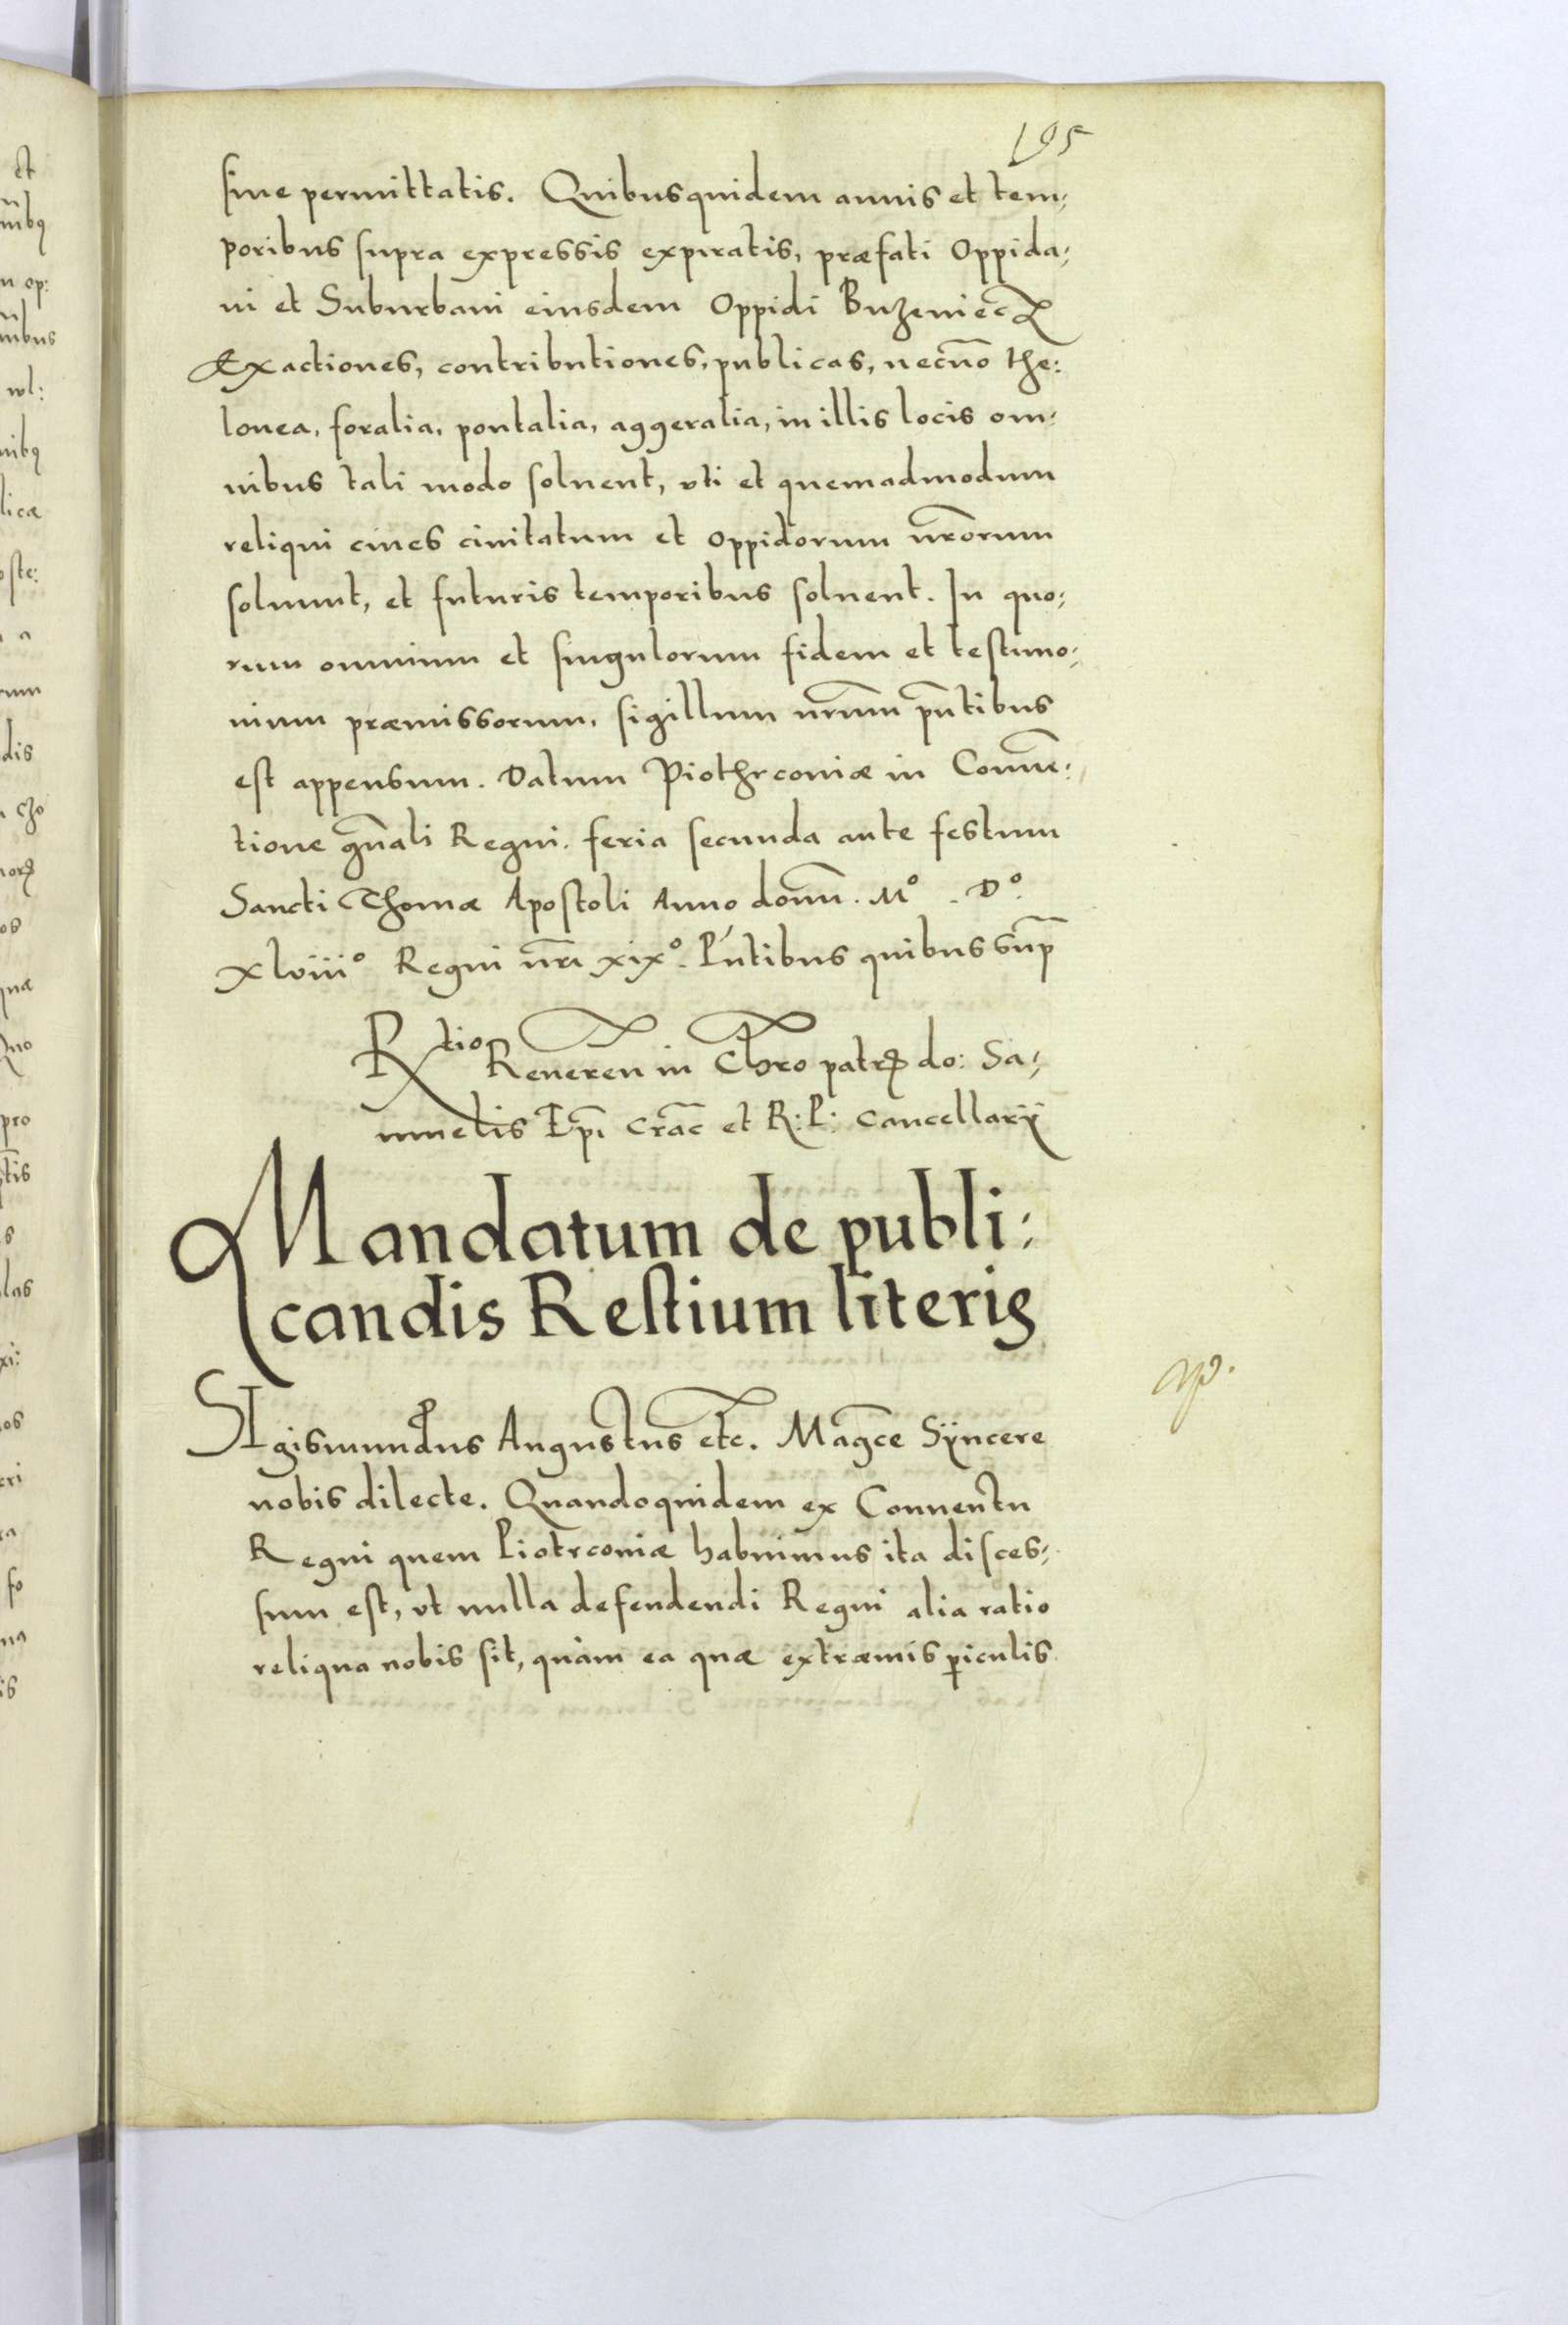 195
sine permittatis. Quibusquidem annis et tem,
poribus supra expressis expiratis, præfati Oppida,
ni et Suburbani eiusdem Oppidi Buzeniecz
Exactiones, contributiones, publicas, necnō the:
lonea, foralia, pontalia, aggeralia, in illis locis om,
nibus tali modo soluent, vti et quemadmodum
reliqui ciues ciuitatum et oppidorum nr̄orum
soluunt, et futuris temporibus soluent. In quo,
rum omnium et singulorum fidem et testimo,
nium præmissorum, sigillum nr̄um pn̄tibus
est appensum. Datum Piothrconiæ in Conuē,
tione gn̄ali Regni. feria secunda ante festum
Sancti Thomæ Apostoli Anno domī. Mº. Dº.
Xlviiiº Regni nr̄i xixº. Pn̄tibus quibus sup̄
Rtio Reueren in Chro patris do: Sa,
muelis Epī Crac̄ et R: P: Cancellarÿ
Mandatum de publi:
candis Restium literis
SIgismundus Augustus etc̄. Maḡce Sÿncere
nobis dilecte. Quandoquidem ex Conuentu
Regni quem Piotrconiæ habuimus ita disces,
sum est, vt nulla defendendi Regni alia ratio
reliqua nobis sit, quàm ea quæ extræmis piculis
et
nibꝫ
m op:
nibus
wl:
nibꝫ
licæ
oste:
a
rum
dis
cʒo
os
quæ
pro
las
xi:
os
eri
ra
fo
is